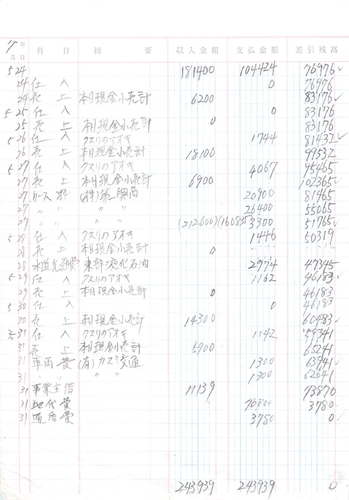 7年
月日 科目 摘要 収入金額 支払金額 差引残高
5 24 181400 104424 76976
24 仕入 0 76976
24 売上 本日現金小売計 6200 83176
5 25 仕入 0 83176
25 売上 本日現金小売計 0 83176
5 26 仕入 クスリのアオキ 1744 81432
26 売上 本日現金小売計 18100 99532
5 27 仕入 クスリのアオキ 4067 95465
27 売上 本日現金小売計 6900 102365
27 リース料 (株) 20900 81465
27 〃 〃 26400 55065
27 〃 〃 (212600) (160835) 3300 51765
5 28 仕入 クスリのアオキ 1446 50319
28 売上 本日現金小売計 0
28 水道光熱費 東部液化石油 2974 47345
5 29 仕入 クスリのアオキ 1162 46183
29 売上 本日現金小売計 0 46183
5 30 仕入 0 46183
30 売上 本日現金小売計 14300 60483
5 31 仕入 クスリのアオキ 1142 59341
31 売上 本日現金小売計 5900 65241
31 車両費 (有)カスミ交通 1300 63941
31 〃 〃 1300 62641
31 事業主借 11139 73870
31 地代費 70000 3780
31 通信費 3780 0
243939 243939 0